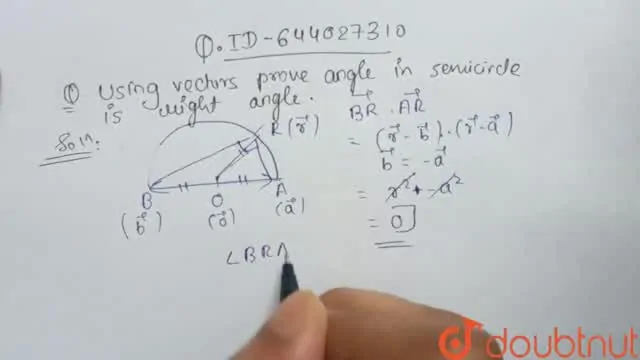 Q. ID-644027310
Q Using vectors prove angle in semicircle
is right angle.
Soln:
R(r⃗)
B O A
(b⃗) (o⃗) (a⃗)
BR⃗ . AR⃗
= (r⃗ - b⃗).(r⃗ - a⃗)
b⃗ = -a⃗
= r² + -a²
= 0
∠BRA
doubtnut